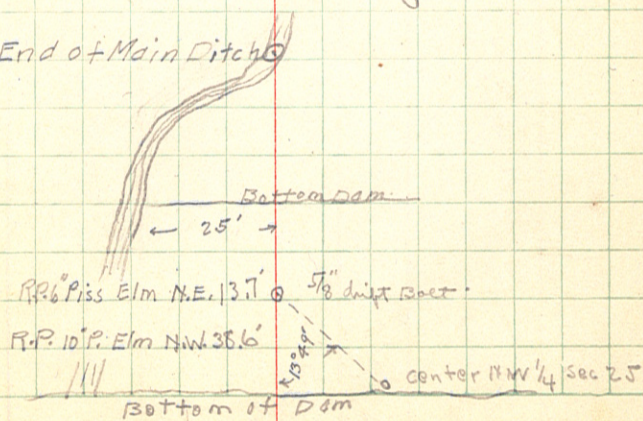 End of Main Ditch
Bottom Dam
25'
R.P. 6" Piss Elm N.E. 13.7' 5/8" drift Bolt.
R.P. 10" P. Elm N.W. 38.6'
center NW 1/4 Sec 25
Bottom of Dam